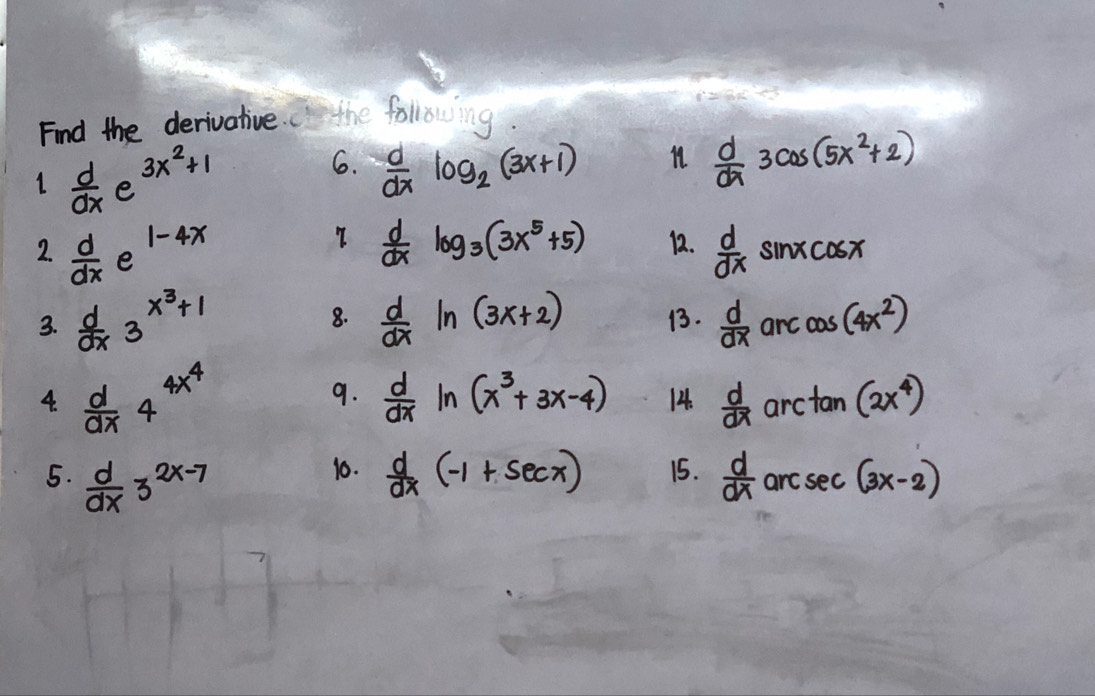 Find the derivative of the following.
1 d/dx e^(3x²+1)
2. d/dx e^(1-4x)
3. d/dx 3^(x³+1)
4. d/dx 4^(4x⁴)
5. d/dx 3^(2x-7)
6. d/dx log₂ (3x+1)
7 d/dx log₃(3x⁵+5)
8. d/dx ln (3x+2)
9. d/dx ln (x³+3x-4)
10. d/dx (-1 + secx)
11. d/dx 3cos(5x²+2)
12. d/dx sinxcosx
13. d/dx arc cos(4x²)
14 d/dx arctan (2x⁴)
15. d/dx arcsec (3x-2)